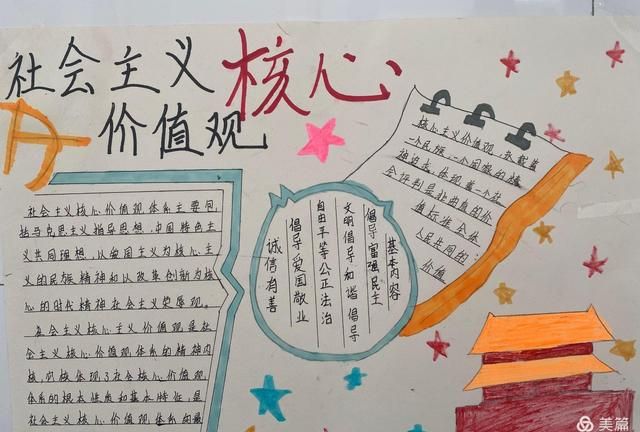 社会主义核心
价值观
社会主义核心价值观体系主要包
括马克思主义指导思想，中国特色主
义共同理想，以爱国主义为核心主
义的民族精神和以改革创新为核
心的时代精神社会主义荣辱观。
社会主义核心主义价值观是社
会主义核心价值观体系的精神内
核，它核体现了社会核心价值观
体系的根本性质和基本特征，是
社会主义核心价值观体系的最
基本内容
倡导富强民主
文明倡导和谐倡导
自由平等公正法治
倡导爱国敬业
诚信有善
核心主义价值观，承载着
一个民族，一个国家的精
神追求，体现着一个社
会评判是非曲直的价
值标准全体
人民共同的
价值
美篇